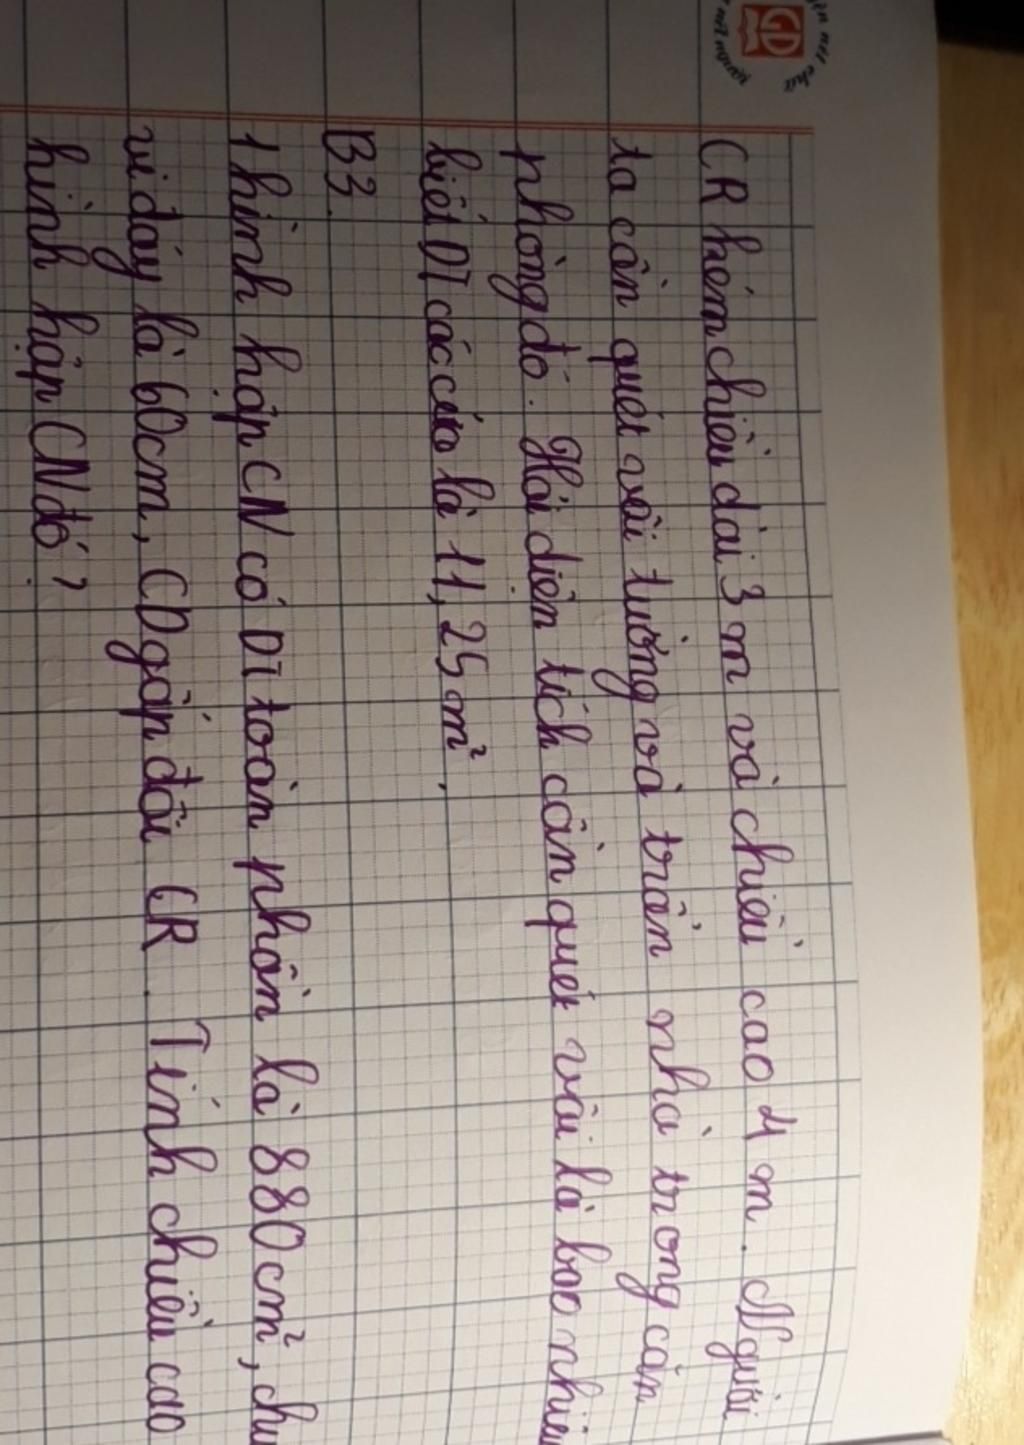 GD
CR kém chiều dài 3 m và chiều cao 4 m. Người
ta cần quét vôi tường và trần nhà trong căn
phòng đó. Hỏi diện tích cần quét vôi là bao nhiêu
biết DT các cửa là 11,25 m².
B3.
1 hình hộp CN có DT toàn phần là 880cm², chu
vi đáy là 60cm, CD gấp đôi CR. Tính chiều cao
hình hộp CN đó?